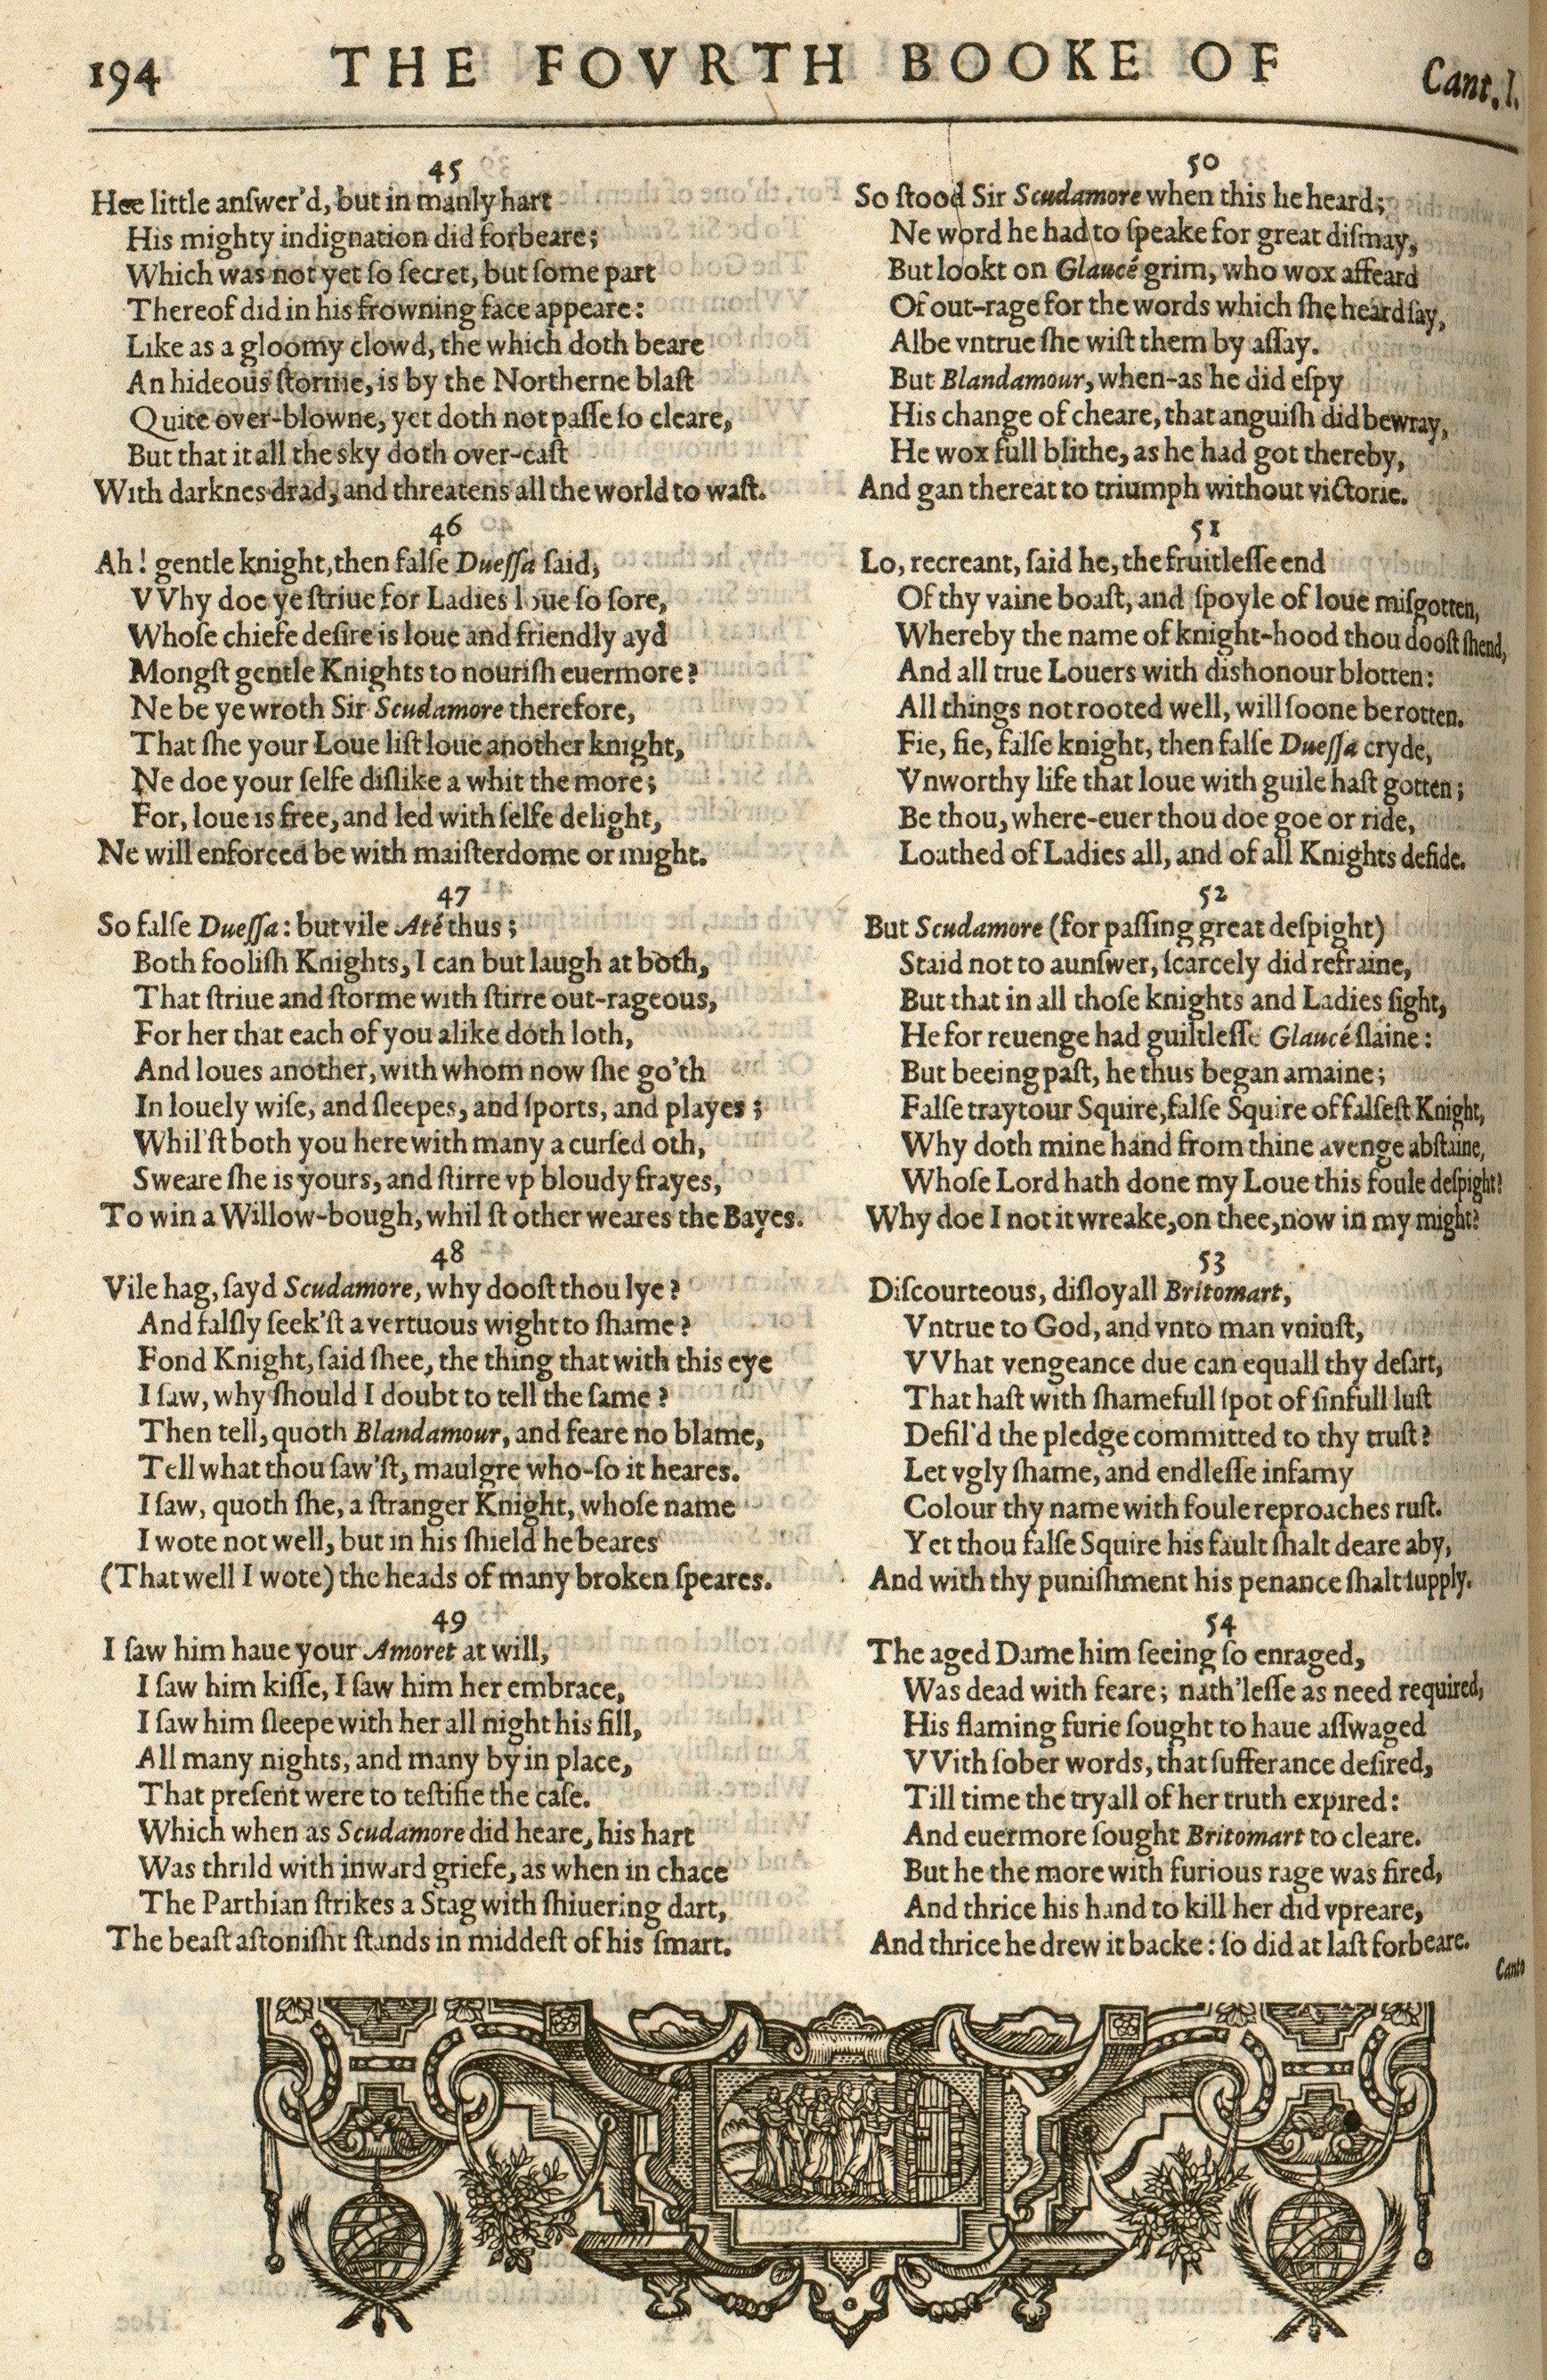 194 THE FOVRTH BOOKE OF Cant. I.
45
Hee little anſwer'd, but in manly hart
His mighty indignation did forbeare;
Which was not yet ſo ſecret, but ſome part
Thereof did in his frowning face appeare:
Like as a gloomy clowd, the which doth beare
An hideous ſtorme, is by the Northerne blaſt
Quite over-blowne, yet doth not paſſe ſo cleare,
But that it all the sky doth over-caſt
With darknes drad, and threatens all the world to waſt.
46
Ah! gentle knight, then falſe Dueſſa ſaid,
VVhy doe ye ſtriue for Ladies loue ſo ſore,
Whoſe chiefe deſire is loue and friendly ayd
Mongſt gentle Knights to nouriſh euermore?
Ne be ye wroth Sir Scudamore therefore,
That ſhe your Loue liſt loue another knight,
Ne doe your ſelfe diſlike a whit the more;
For, loue is free, and led with ſelfe delight,
Ne will enforced be with maiſterdome or might.
47
So falſe Dueſſa: but vile Até thus;
Both fooliſh Knights, I can but laugh at both,
That ſtriue and ſtorme with ſtirre out-rageous,
For her that each of you alike doth loth,
And loues another, with whom now ſhe go'th
In louely wiſe, and ſleepes, and ſports, and playes;
Whil'ſt both you here with many a curſed oth,
Sweare ſhe is yours, and ſtirre vp bloudy frayes,
To win a Willow-bough, whil ſt other weares the Bayes.
48
Vile hag, ſayd Scudamore, why dooſt thou lye?
And falſly ſeek'ſt a vertuous wight to ſhame?
Fond Knight, ſaid ſhee, the thing that with this eye
I ſaw, why ſhould I doubt to tell the ſame?
Then tell, quoth Blandamour, and feare no blame,
Tell what thou ſaw'ſt, maulgre who-ſo it heares.
I ſaw, quoth ſhe, a ſtranger Knight, whoſe name
I wote not well, but in his ſhield he beares
(That well I wote) the heads of many broken ſpeares.
49
I ſaw him haue your Amoret at will,
I ſaw him kiſſe, I ſaw him her embrace,
I ſaw him ſleepe with her all night his fill,
All many nights, and many by in place,
That preſent were to teſtifie the caſe.
Which when as Scudamore did heare, his hart
Was thrild with inward griefe, as when in chace
The Parthian ſtrikes a Stag with ſhiuering dart,
The beaſt aſtoniſht ſtands in middeſt of his ſmart.
50
So ſtood Sir Scudamore when this he heard;
Ne word he had to ſpeake for great diſmay,
But lookt on Glaucé grim, who wox affeard
Of out-rage for the words which ſhe heard ſay,
Albe vntrue ſhe wiſt them by aſſay.
But Blandamour, when-as he did eſpy
His change of cheare, that anguiſh did bewray,
He wox full blithe, as he had got thereby,
And gan thereat to triumph without victorie.
51
Lo, recreant, ſaid he, the fruitleſſe end
Of thy vaine boaſt, and ſpoyle of loue miſgotten,
Whereby the name of knight-hood thou dooſt ſhend,
And all true Louers with dishonour blotten:
All things not rooted well, will ſoone be rotten.
Fie, fie, falſe knight, then falſe Dueſſa cryde,
Vnworthy life that loue with guile haſt gotten;
Be thou, where-euer thou doe goe or ride,
Loathed of Ladies all, and of all Knights defide.
52
But Scudamore (for paſſing great deſpight)
Staid not to aunſwer, ſcarcely did refraine,
But that in all thoſe knights and Ladies ſight,
He for reuenge had guiltleſſe Glaucé ſlaine:
But beeing paſt, he thus began amaine;
Falſe traytour Squire, falſe Squire of falſeſt Knight,
Why doth mine hand from thine avenge abſtaine,
Whoſe Lord hath done my Loue this foule deſpight?
Why doe I not it wreake, on thee, now in my might?
53
Diſcourteous, diſloyall Britomart,
Vntrue to God, and vnto man vniuſt,
VVhat vengeance due can equall thy deſart,
That haſt with ſhamefull ſpot of ſinfull luſt
Defil'd the pledge committed to thy truſt?
Let vgly ſhame, and endleſſe infamy
Colour thy name with foule reproaches ruſt.
Yet thou falſe Squire his fault ſhalt deare aby,
And with thy puniſhment his penance ſhalt ſupply.
54
The aged Dame him ſeeing ſo enraged,
Was dead with feare; nath'leſſe as need required,
His flaming furie ſought to haue aſſwaged
VVith ſober words, that ſufferance deſired,
Till time the tryall of her truth expired:
And euermore ſought Britomart to cleare.
But he the more with furious rage was fired,
And thrice his hand to kill her did vpreare,
And thrice he drew it backe: ſo did at laſt forbeare.
Canto